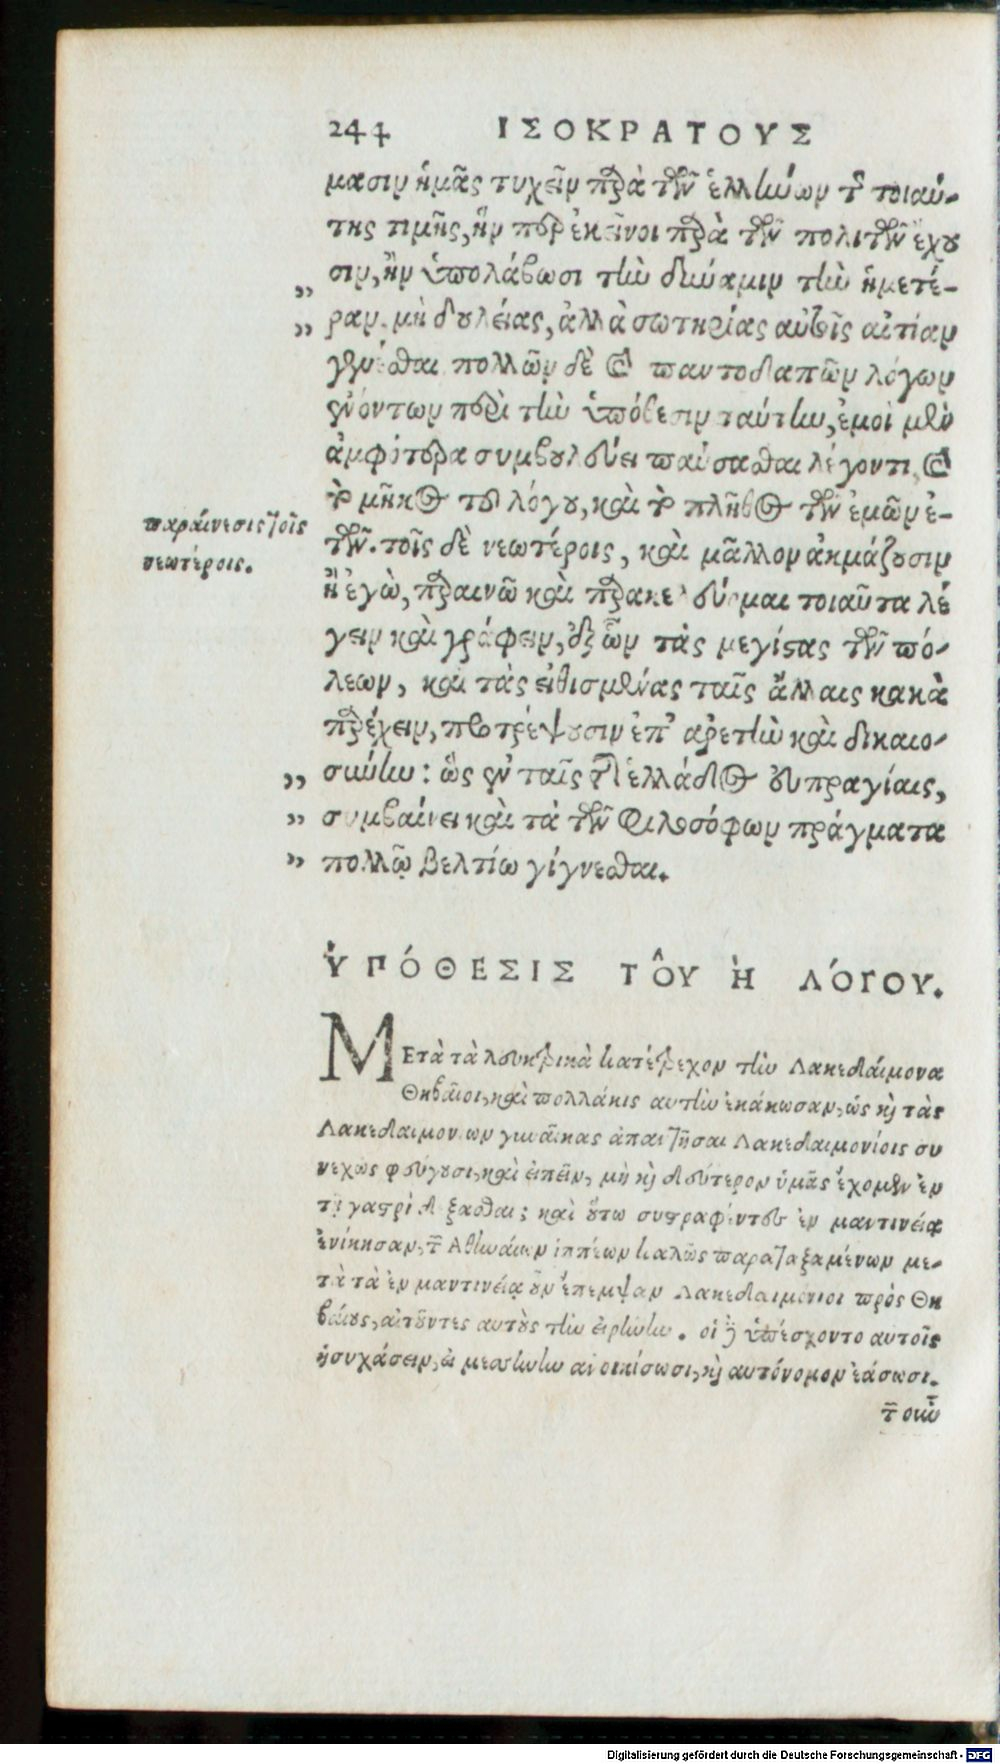 244 ΙΣΟΚΡΑΤΟΥΣ
μασιν ἡμᾶς τυχεῖν παρὰ τῶν ἑλλήνων τῆς τοιαύ-
της τιμῆς, ἥν περ ἐκεῖνοι παρὰ τῶν πολιτῶν ἔχου
σιν, ἢν ὑπολάβωσι τὴν δύναμιν τὴν ἡμετέ-
ραν. μὴ δουλείας, ἀλλὰ σωτηρίας αὐτοῖς αἰτίαν
γενέσθαι πολλῶν δὲ καὶ παντοδαπῶν λόγων
ἐνόντων περὶ τὴν ὑπόθεσιν ταύτην, ἐμοὶ μὲν
ἀμφότερα συμβουλεύει παύσασθαι λέγοντι, καὶ
τὸ μῆκος τοῦ λόγου, καὶ τὸ πλῆθος τῶν ἐμῶν ἐ-
τῶν. τοῖς δὲ νεωτέροις, καὶ μᾶλλον ἀκμάζουσιν
ἢ ἐγὼ, παραινῶ καὶ παρακελεύομαι τοιαῦτα λέ
γειν καὶ γράφειν, ἐξ ὧν τὰς μεγίστας τῶν πό-
λεων, καὶ τὰς εἰθισμένας ταῖς ἄλλαις κακὰ
παρέχειν, προτρέψουσιν ἐπ᾽ ἀρετὴν καὶ δικαιο-
σύνην: ὡς ἐν ταῖς τῆς ἑλλάδος εὐπραγίαις,
συμβαίνει καὶ τὰ τῶν φιλοσόφων πράγματα
πολλῷ βελτίω γίγνεσθαι.
παραίνεσις τοῖς
νεωτέροις.
ὙΠΌΘΕΣΙΣ ΤΟῦ Ὴ ΛΌΓΟΥ.
ΜΕτὰ τὰ λευκτρικὰ κατέτρεχον τὴν Λακεδαίμονα
Θηβαῖοι, καὶ πολλάκις αὐτὴν ἐκάκωσαν, ὡς καὶ τὰς
Λακεδαιμονίων γυναῖκας ἀπαντῆσαι Λακεδαιμονίοις συ
νεχῶς φεύγουσι, καὶ εἰπεῖν, μὴ καὶ δεύτερον ὑμᾶς ἔχομεν ἐν
τῇ γαστρὶ δέξασθαι; καὶ οὕτω συστραφέντες ἐν μαντινείᾳ
ἐνίκησαν, τῶν Ἀθηναίων ἱππέων καλῶς παραταξαμένων με-
τὰ τὰ ἐν μαντινείᾳ οὖν ἔπεμψαν Λακεδαιμόνιοι πρὸς Θη
βαίους, αἰτοῦντες αὐτοὺς τὴν εἰρήνην. οἱ δὲ ὑπέσχοντο αὐτοῖς
ἡσυχάσειν, εἰ μεσήνην ἀνοικίσωσι, καὶ αὐτόνομον ἐάσωσι.
τῶν οὖν